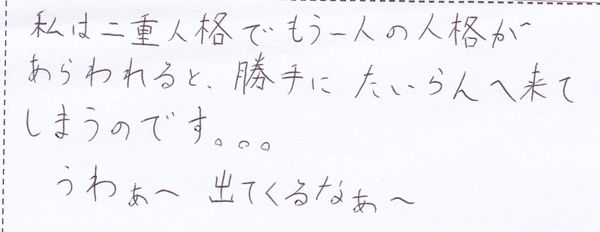 私は二重人格でもう一人の人格が
あらわれると、勝手にたいらんへ来て
しまうのです。。。
うわぁ～ 出てくるなぁ～